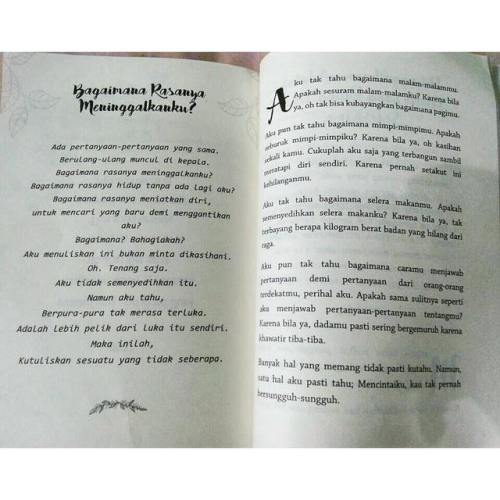 Bagaimana Rasanya
Meninggalkanku?
Ada pertanyaan-pertanyaan yang sama.
Berulang-ulang muncul di kepala.
Bagaimana rasanya meninggalkanku?
Bagaimana rasanya hidup tanpa ada lagi aku?
Bagaimana rasanya meniatkan diri,
untuk mencari yang baru demi menggantikan
aku?
Bagaimana? Bahagiakah?
Aku menuliskan ini bukan minta dikasihani.
Oh. Tenang saja.
Aku tidak semenyedihkan itu.
Namun aku tahu,
Berpura-pura tak merasa terluka.
Adalah lebih pelik dari luka itu sendiri.
Maka inilah,
Kutuliskan sesuatu yang tidak seberapa.
Aku tak tahu bagaimana malam-malammu.
Apakah sesuram malam-malamku? Karena bila
ya, oh tak bisa kubayangkan bagaimana pagimu.
Aku pun tak tahu bagaimana mimpi-mimpimu. Apakah
seburuk mimpi-mimpiku? Karena bila ya, oh kasihan
sekali kamu. Cukuplah aku saja yang terbangun sambil
meratapi diri sendiri. Karena pernah setakut ini
kehilanganmu.
Aku tak tahu bagaimana selera makanmu. Apakah
semenyedihkan selera makanku? Karena bila ya, tak
terbayang berapa kilogram berat badan yang hilang dari
raga.
Aku pun tak tahu bagaimana caramu menjawab
pertanyaan demi pertanyaan dari orang-orang
terdekatmu, perihal aku. Apakah sama sulitnya seperti
aku menjawab pertanyaan-pertanyaan tentangmu?
Karena bila ya, dadamu pasti sering bergemuruh karena
khawatir tiba-tiba.
Banyak hal yang memang tidak pasti kutahu. Namun,
satu hal aku pasti tahu; Mencintaiku, kau tak pernah
bersungguh-sungguh.